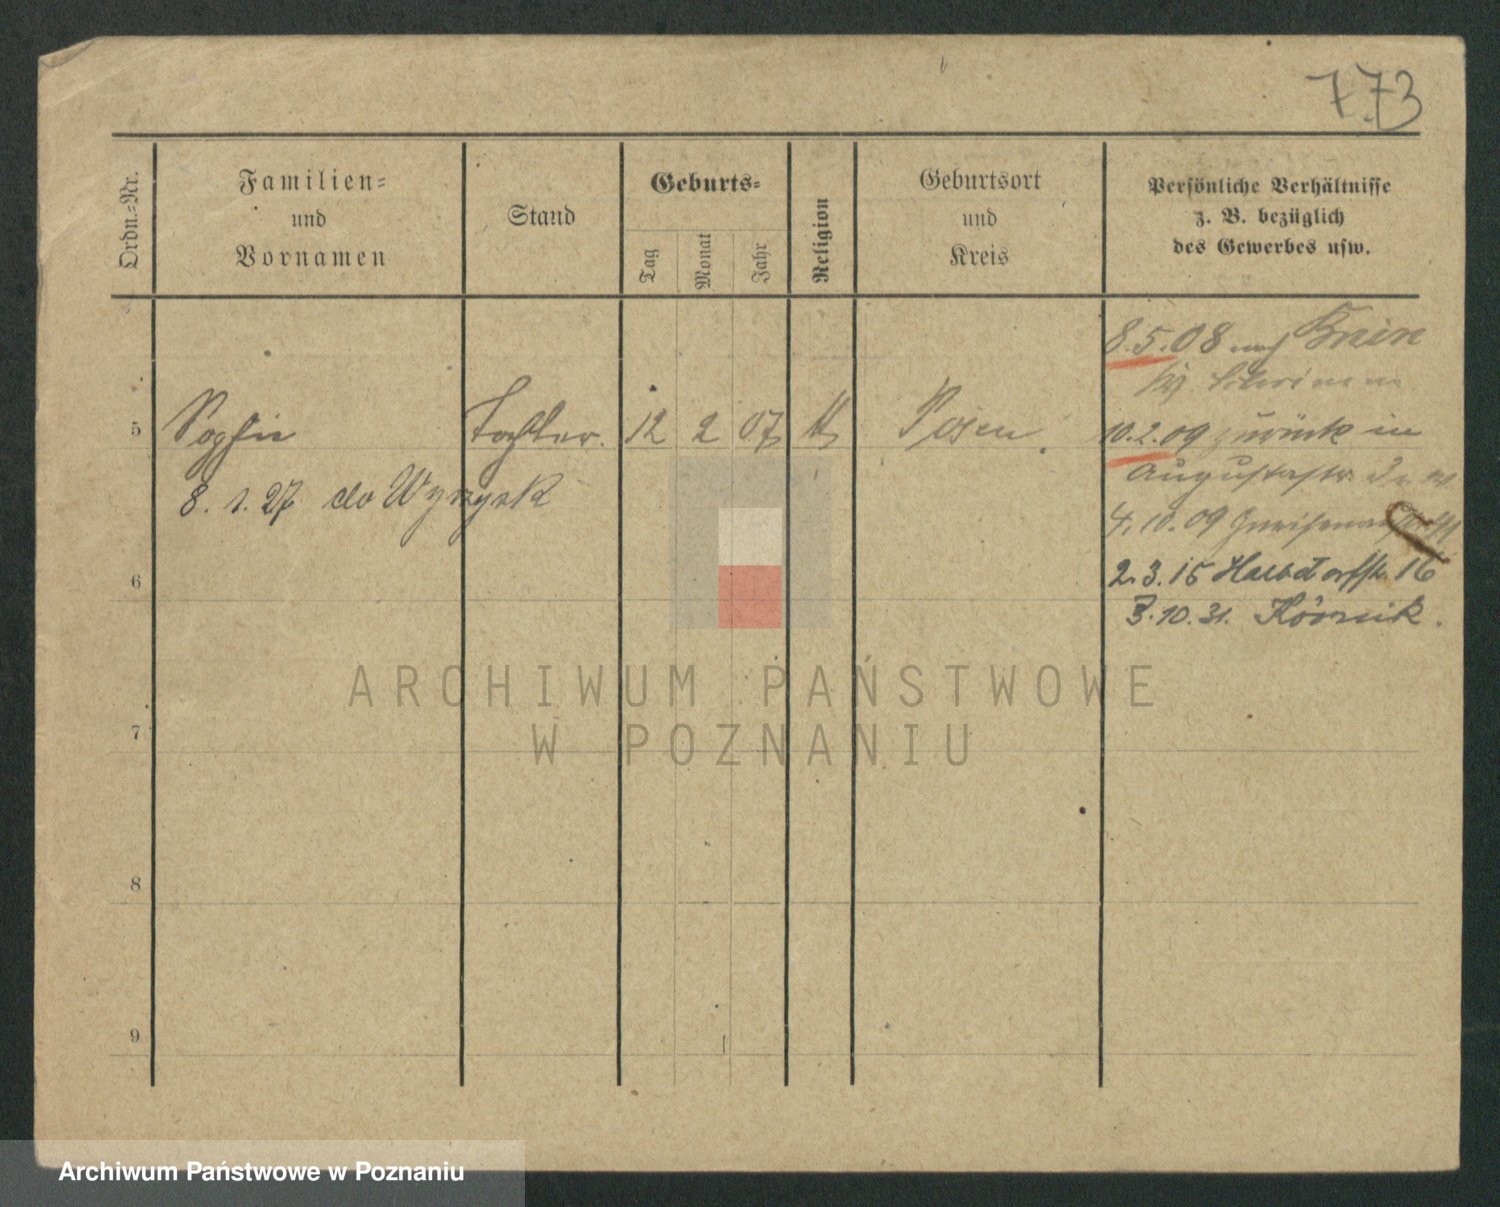 773
Ordn.-Nr.
Familien-
und
Vornamen
Stand
Geburts-
Tag
Monat
Jahr
Religion
Geburtsort
und
Kreis
Persönliche Verhältnisse
z. B. bezüglich
des Gewerbes usw.
8.5.08 nach
5 Sophie Tochter. 12 2 07 Posen
10.2.09 zurück in
Augustastr.
8. 1. 27 do Wyrzysk
4. 10. 09
6
2.3.15 16
3.10.31. Kórnik.
ARCHIWUM PAŃSTWOWE
W POZNANIU
7
8
9
Archiwum Państwowe w Poznaniu